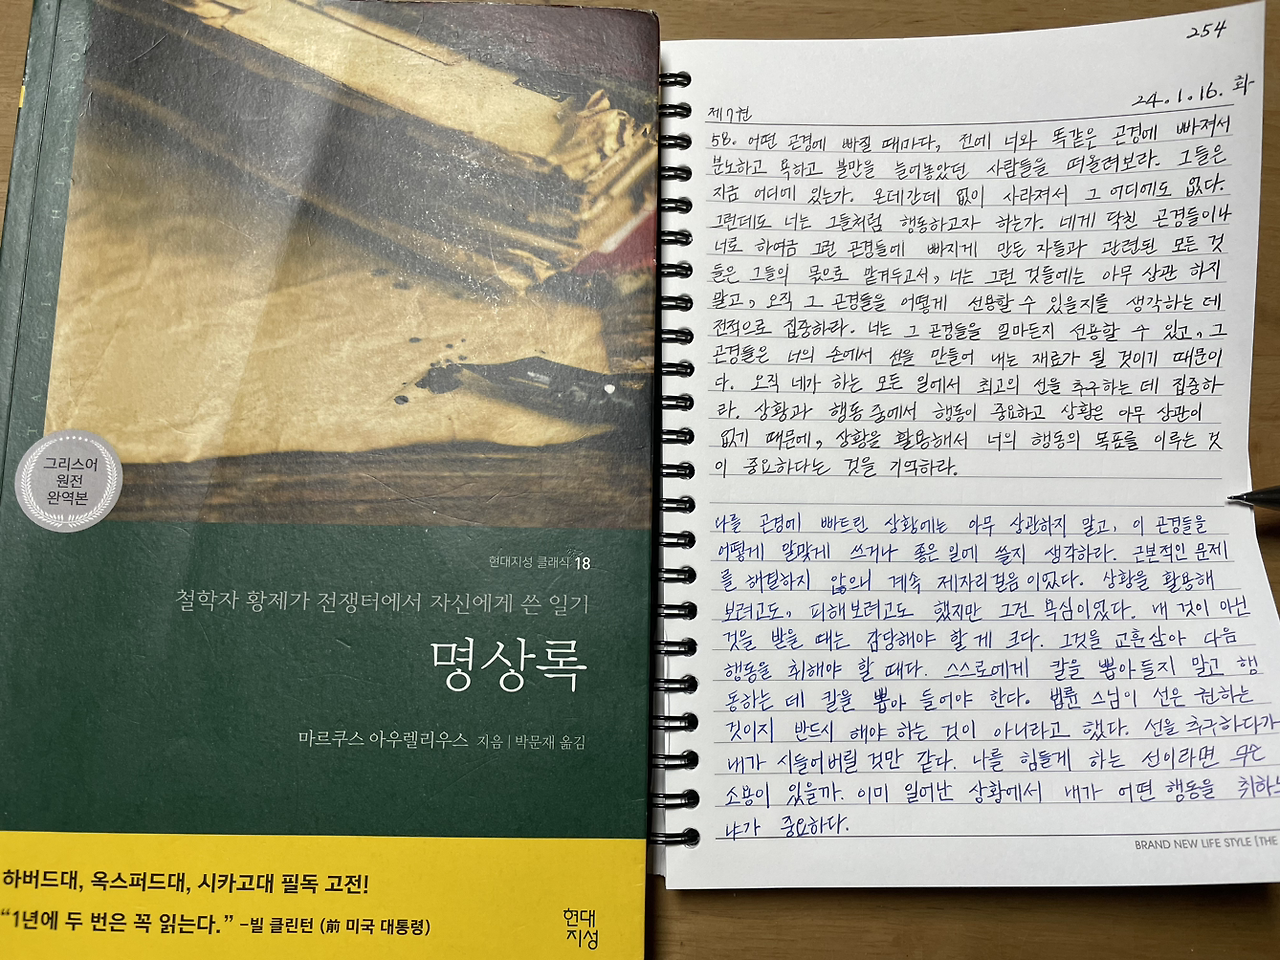 그리스어
원전
완역본
현대지성 클래식 18
철학자 황제가 전쟁터에서 자신에게 쓴 일기
명상록
마르쿠스 아우렐리우스 지음 | 박문재 옮김
하버드대, 옥스퍼드대, 시카고대 필독 고전!
“1년에 두 번은 꼭 읽는다.” -빌 클린턴 (前 미국 대통령)
현대
지성
254
24.1.16. 화
제7권
58. 어떤 곤경에 빠질 때마다, 전에 너와 똑같은 곤경에 빠져서
분노하고 욕하고 불만을 늘어놓았던 사람들을 떠올려보라. 그들은
지금 어디에 있는가. 온데간데 없이 사라져서 그 어디에도 없다.
그런데도 너는 그들처럼 행동하고자 하는가. 네게 닥친 곤경들이나
너로 하여금 그런 곤경들에 빠지게 만든 자들과 관련된 모든 것
들은 그들의 몫으로 맡겨두고서, 너는 그런 것들에는 아무 상관 하지
말고, 오직 그 곤경들을 어떻게 선용할 수 있을지를 생각하는 데
전적으로 집중하라. 너는 그 곤경들을 얼마든지 선용할 수 있고, 그
곤경들은 너의 손에서 선을 만들어 내는 재료가 될 것이기 때문이
다. 오직 네가 하는 모든 일에서 최고의 선을 추구하는 데 집중하
라. 상황과 행동 중에서 행동이 중요하고 상황은 아무 상관이
없기 때문에, 상황을 활용해서 너의 행동의 목표를 이루는 것
이 중요하다는 것을 기억하라.
나를 곤경에 빠트린 상황에는 아무 상관하지 말고, 이 곤경들을
어떻게 알맞게 쓰거나 좋은 일에 쓸지 생각하라. 근본적인 문제
를 해결하지 않으니 계속 제자리걸음이었다. 상황을 활용해
보려고도, 피해보려고도 했지만 그건 욕심이었다. 내 것이 아닌
것을 받을 때는 감당해야 할 게 크다. 그것을 교훈삼아 다음
행동을 취해야 할 때다. 스스로에게 칼을 뽑아들지 말고 행
동하는 데 칼을 뽑아 들어야 한다. 법륜 스님이 선은 권하는
것이지 반드시 해야 하는 것이 아니라고 했다. 선을 추구하다가
내가 시들어버릴 것만 같다. 나를 힘들게 하는 선이라면 무슨
소용이 있을까. 이미 일어난 상황에서 내가 어떤 행동을 취하느
냐가 중요하다.
BRAND NEW LIFE STYLE [THE